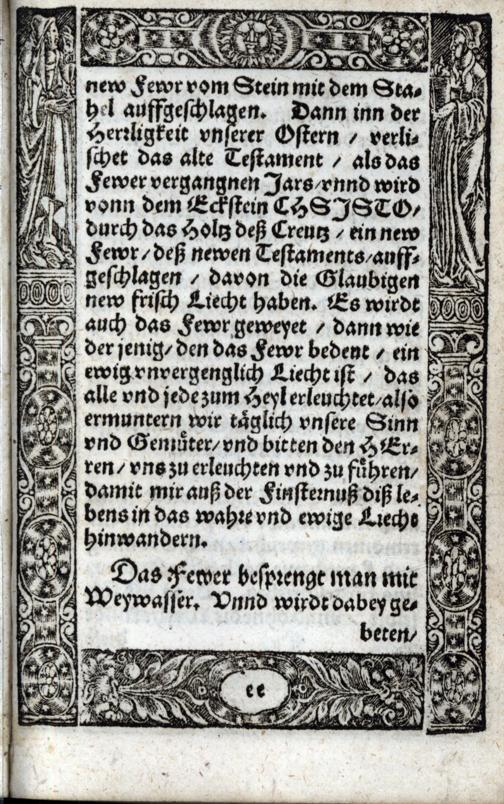 new Fewr vom Stein mit dem Sta-
hel auffgeschlagen. Dann inn der
Herrligkeit vnserer Ostern / verli-
schet das alte Testament / als das
Fewer vergangnen Jars / vnnd wird
vonn dem Eckstein CHSJSTO /
durch das Holtz deß Creutz / ein new
Fewr / deß newen Testaments / auff-
geschlagen / davon die Glaubigen
new frisch Liecht haben. Es wirdt
auch das Fewr geweyet / dann wie
der jenig / den das Fewr bedent / ein
ewig vnvergenglich Liecht ist / das
alle vnd jede zum Heyl erleuchtet / also
ermuntern wir täglich vnsere Sinn
vnd Gemüter / vnd bitten den HEr-
ren / vns zu erleuchten vnd zu führen /
damit mir auß der Finsternuß diß le-
bens in das wahre vnd ewige Liecht
hinwandern.
Das Fewer besprengt man mit
Weywasser. Vnnd wirdt dabey ge-
beten /
ee